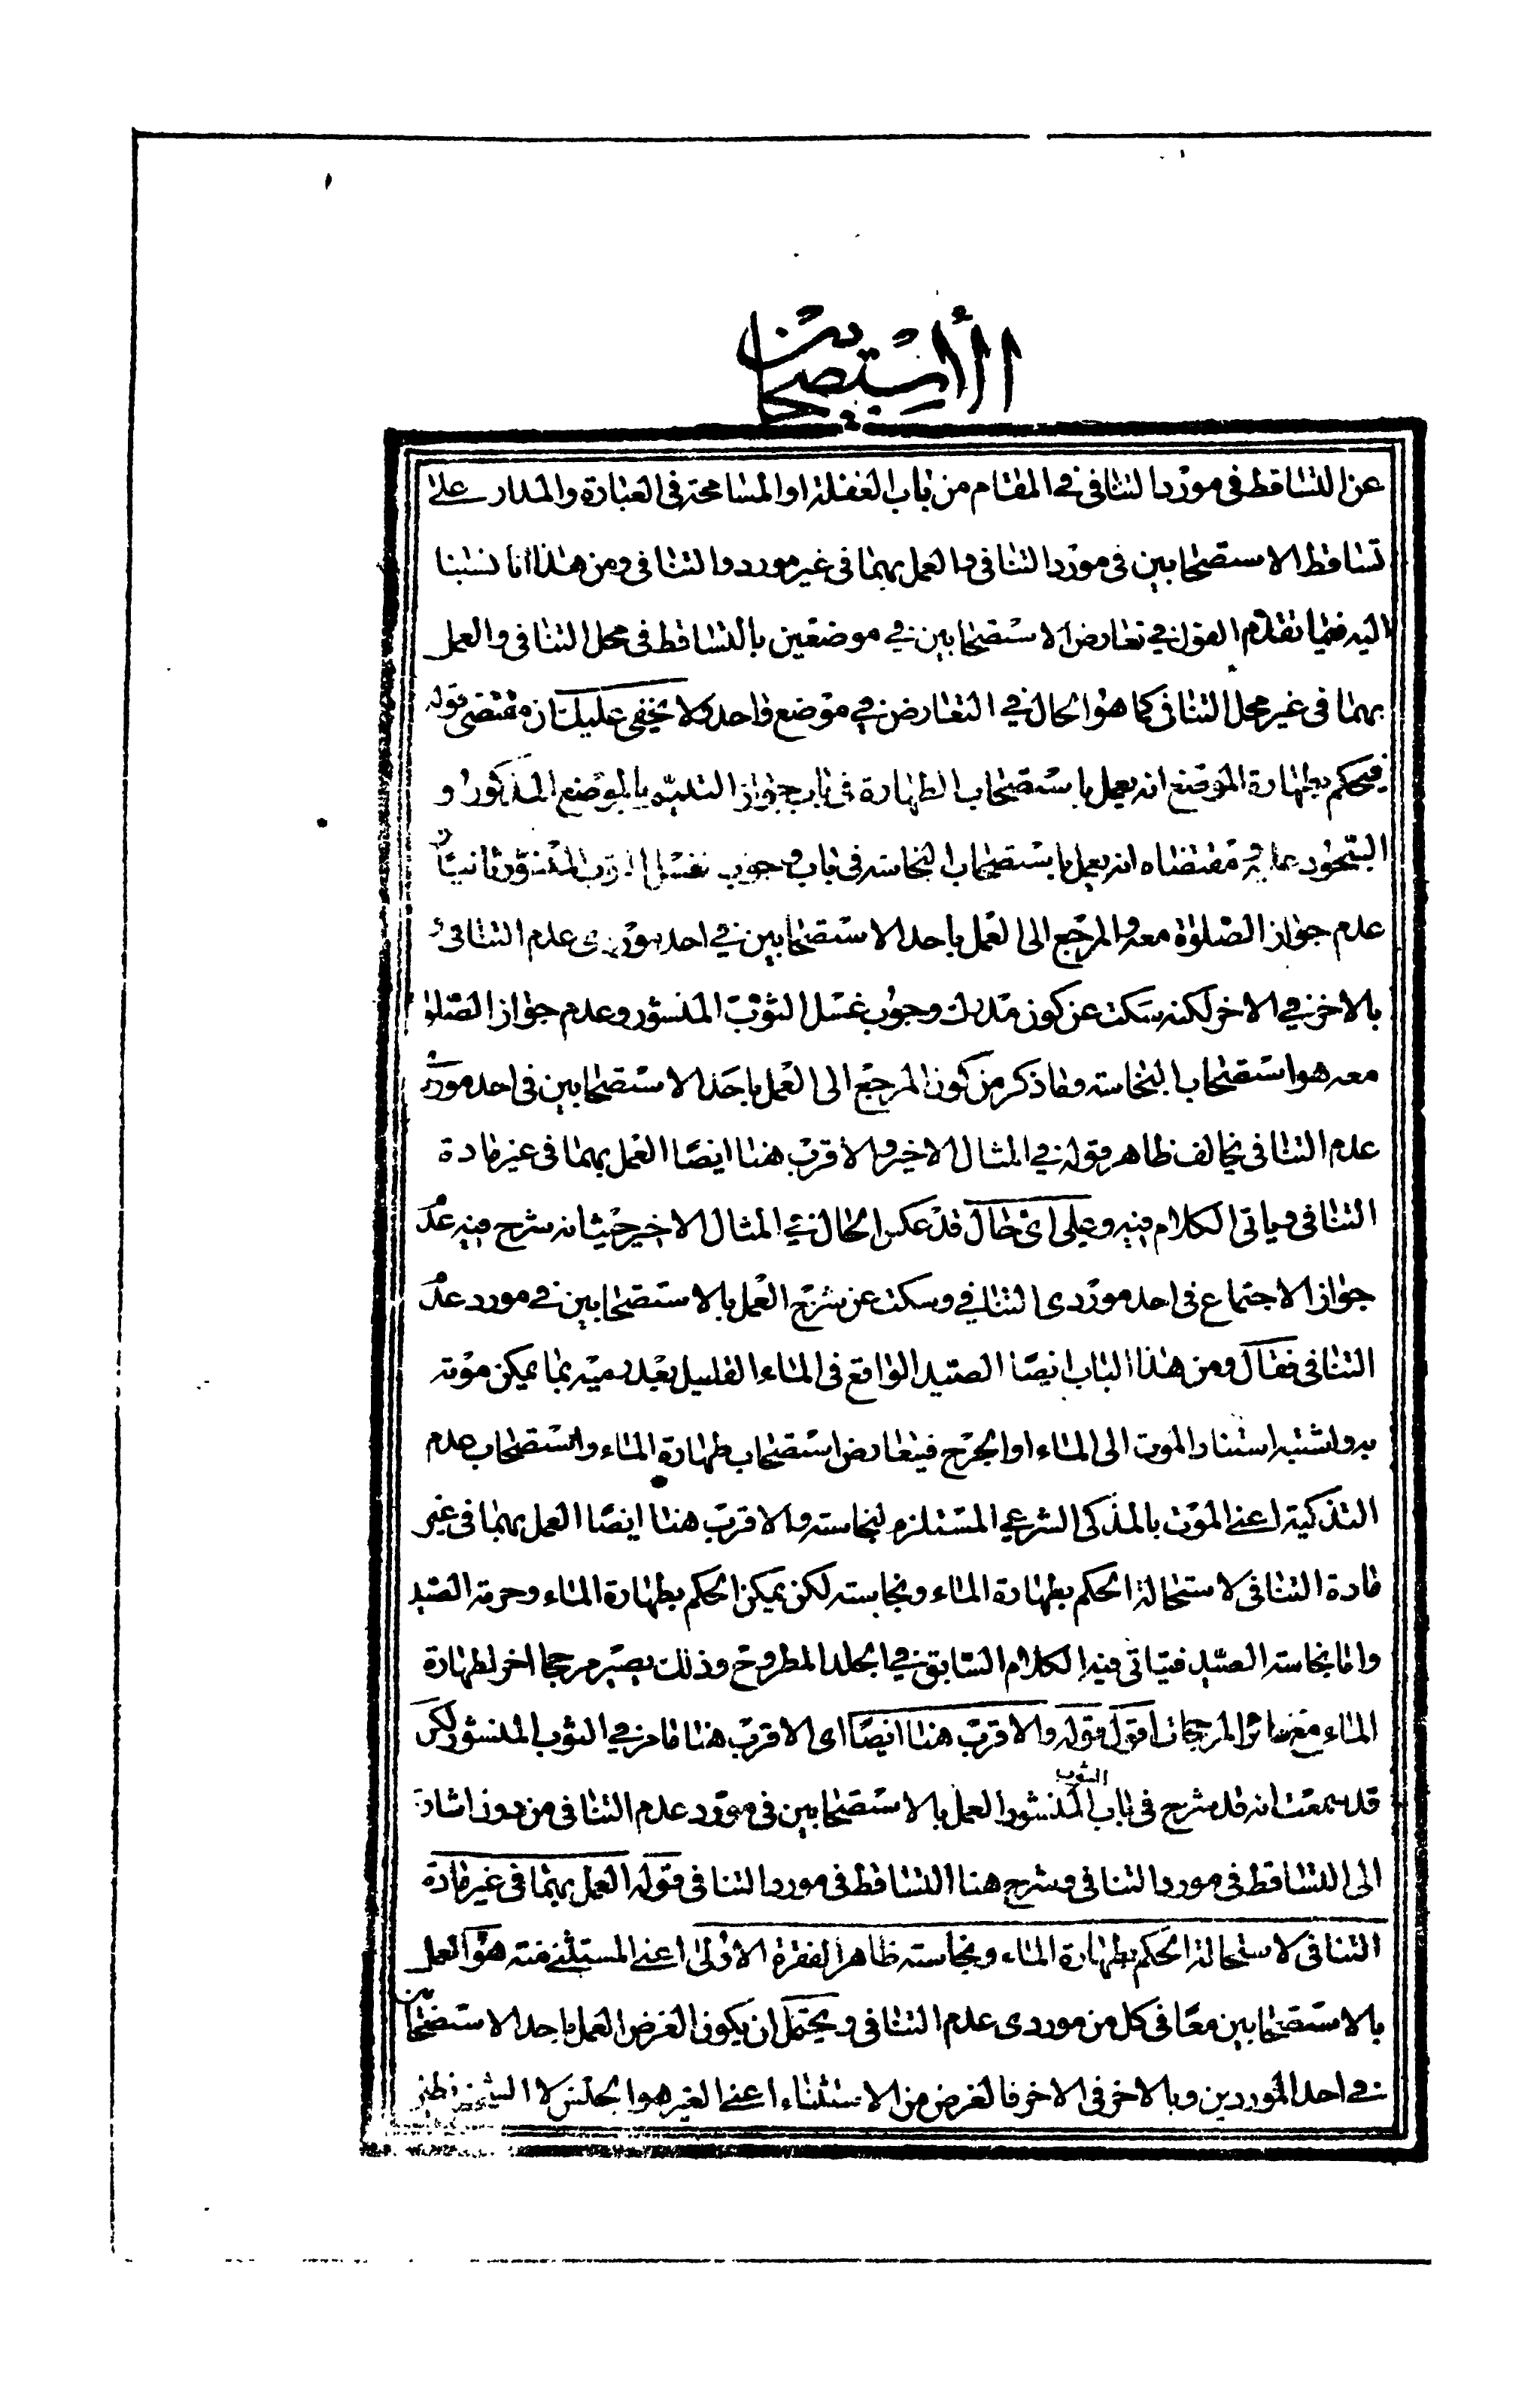 في الاستصحاب
عن التساقط فى مورد التنافى فى المقام من باب الغفلة او المسامحة فى العبارة والمدار على
تساقط الاستصحابين فى مورد التنافى والعمل بهما فى غير مورد التنافى ومن هذا انا نسبنا
اليه فيما تقدم القول فى تعارض الاستصحابين فى موضعين بالتساقط فى محل التنافى والعمل
بهما فى غير محل التنافى كما هو الحال فى التعارض فى موضع واحد ولا يخفى عليك ان مقتضى قوله
فيحكم بطهارة الموضع انه يعمل باستصحاب الطهارة فى باب جواز التيمم بالموضع المذكور و
السجود عليه مقتضاه انه يعمل باستصحاب النجاسة فى باب وجوب غسل الثوب المنشور ثانيا و
عدم جواز الصلوة معه والمرجع الى العمل باحد الاستصحابين فى احد موردى عدم التنافى و
بالاخر فى الاخر لكنه سكت عن كون مدرك وجوب غسل الثوب المنشور وعدم جواز الصلوة
معه هو استصحاب النجاسة وما ذكر من كون المرجع الى العمل باحد الاستصحابين فى احد موردى
عدم التنافى يخالف ظاهر قوله فى المثال الاخير والاقرب هنا ايضا العمل بهما فى غير مادة
التنافى وياتى الكلام فيه وعلى اى حال قد عكس الحال فى المثال الاخير حيث انه شرح فيه عدم
جواز الاجتماع فى احد موردى التنافى وسكت عن شرح العمل بالاستصحابين فى مورد عدم
التنافى فقال ومن هذا الباب ايضا الصيد الواقع فى الماء القليل بعد رميه بما يمكن موته
به واشتبه استناد الموت الى الماء او الجرح فيتعارض استصحاب طهارة الماء واستصحاب عدم
التذكية اعنى الموت بالمذكى الشرعى المستلزم لنجاسته والاقرب هنا ايضا العمل بهما فى غير
مادة التنافى لاستحالة الحكم بطهارة الماء ونجاسته لكن يمكن الحكم بطهارة الماء وحرمة الصيد
واما نجاسة الصيد فياتى فيه الكلام السابق فى الجلد المطروح وذلك يصير مرجحا اخر لطهارة
الماء مع سائر المرجحات اقول قوله والاقرب هنا ايضا اى الاقرب هنا ما مر فى الثوب المنشور لكن
قد سمعت انه قد شرح فى باب الثوب المنشور العمل بالاستصحابين فى مورد عدم التنافى من دون اشارة
الى التساقط فى مورد التنافى وشرح هنا التساقط فى مورد التنافى قوله العمل بهما فى غير مادة
التنافى لاستحالة الحكم بطهارة الماء ونجاسته ظاهر الفقرة الاولى اعنى المستثنى منه هو العمل
بالاستصحابين معا فى كل من موردى عدم التنافى ويحتمل ان يكون الغرض العمل باحد الاستصحابين
فى احد الموردين وبالاخر فى الاخر فالغرض من الاستثناء اعنى الغير هو الجنس لا الشخص نظير